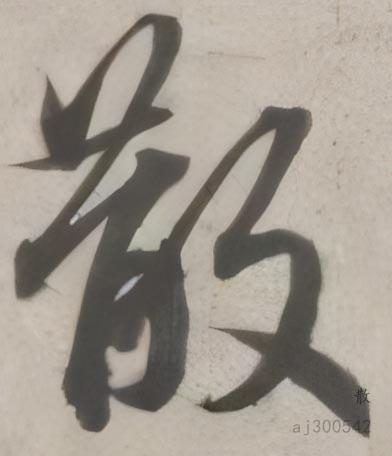 散
散
aj300542